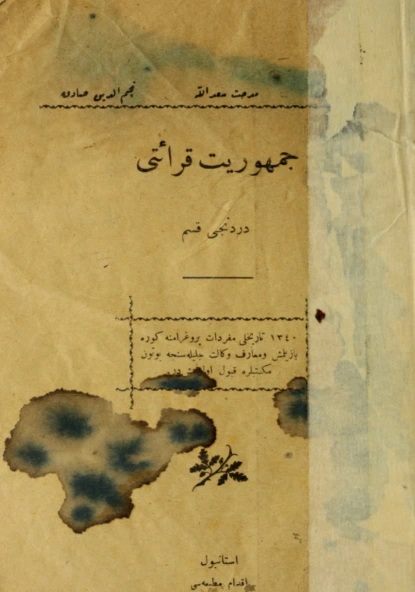 مدحت سعد الله نجم الدين صادق
جمهوريت قرائتى
دردنجى قسم
١٣٤٠ تاريخلى مفردات پروغرامنه كوره
يازيلمش ومعارف وكالت جليله‌سنجه بوتون
مكتبلره قبول
استانبول
اقدام مطبعه‌سى